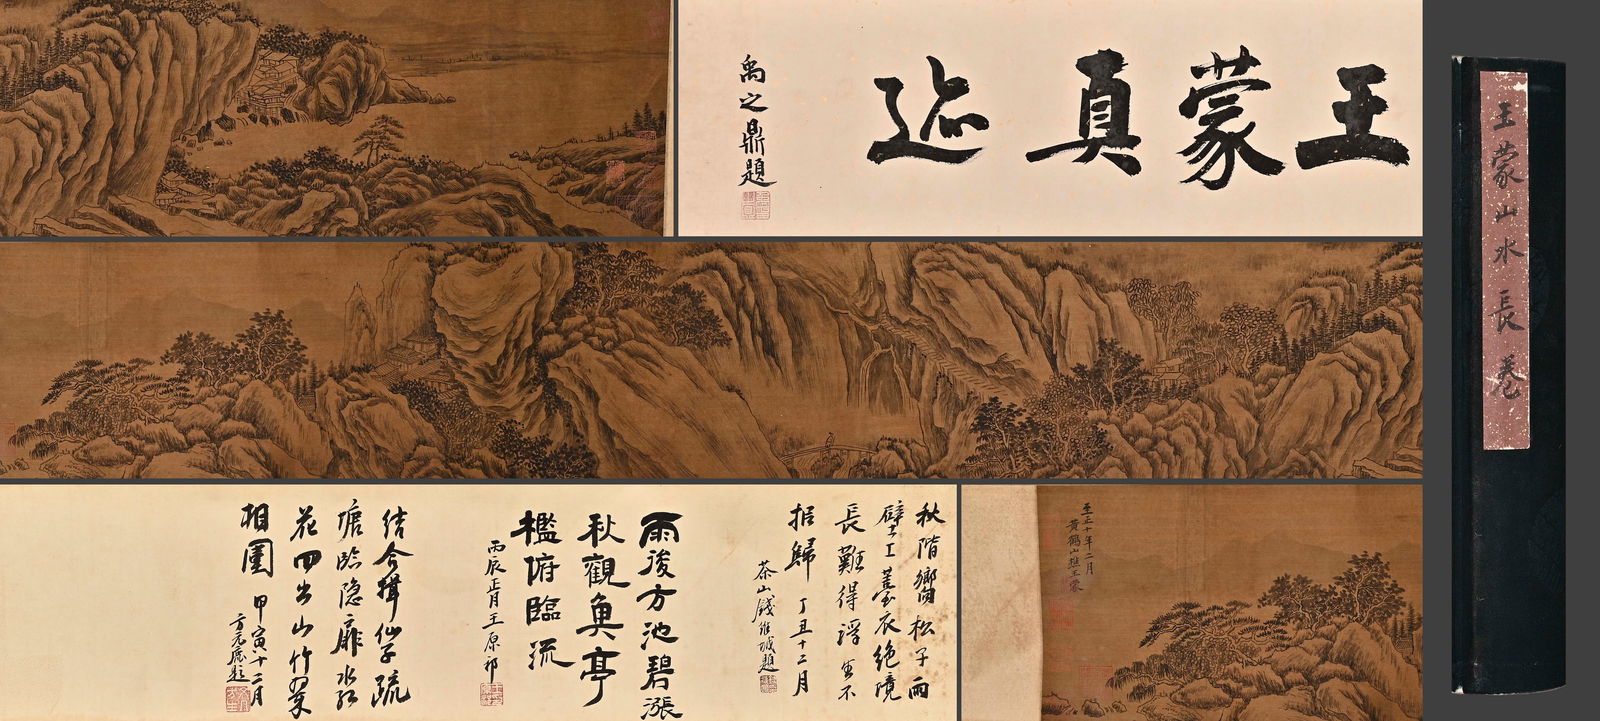 王蒙真迹
禹之鼎題
王蒙山水長卷
至正十年二月
黃鶴山樵王蒙
秋階鄉窗松子雨
壁工薹衣絕境
長難得浮生不
擬歸 丁丑十二月
茶山錢維城題
雨後方池碧漲
秋觀魚亭
檻俯臨流
丙辰正月王原祁
結舍揖仙子疏
塘臨隐扉水紅
花四出山竹翠
相圍 甲寅十二月
方元鹿題